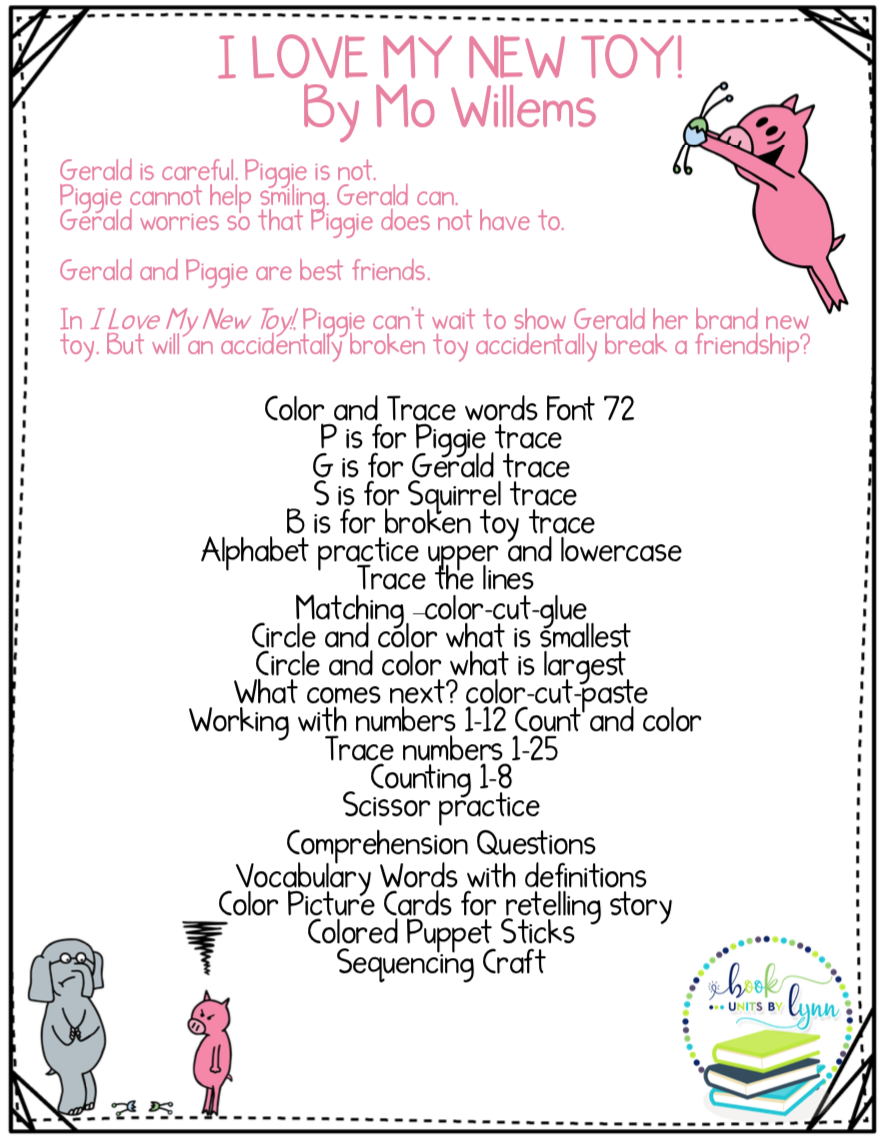 I LOVE MY NEW TOY!
By Mo Willems
Gerald is careful. Piggie is not.
Piggie cannot help smiling. Gerald can.
Gerald worries so that Piggie does not have to.
Gerald and Piggie are best friends.
In I Love My New Toy!, Piggie can't wait to show Gerald her brand new
toy. But will an accidentally broken toy accidentally break a friendship?
Color and Trace words Font 72
P is for Piggie trace
G is for Gerald trace
S is for Squirrel trace
B is for broken toy trace
Alphabet practice upper and lowercase
Trace the lines
Matching –color-cut-glue
Circle and color what is smallest
Circle and color what is largest
What comes next? color-cut-paste
Working with numbers 1-12 Count and color
Trace numbers 1-25
Counting 1-8
Scissor practice
Comprehension Questions
Vocabulary Words with definitions
Color Picture Cards for retelling story
Colored Puppet Sticks
Sequencing Craft
book
UNITS BY
lynn